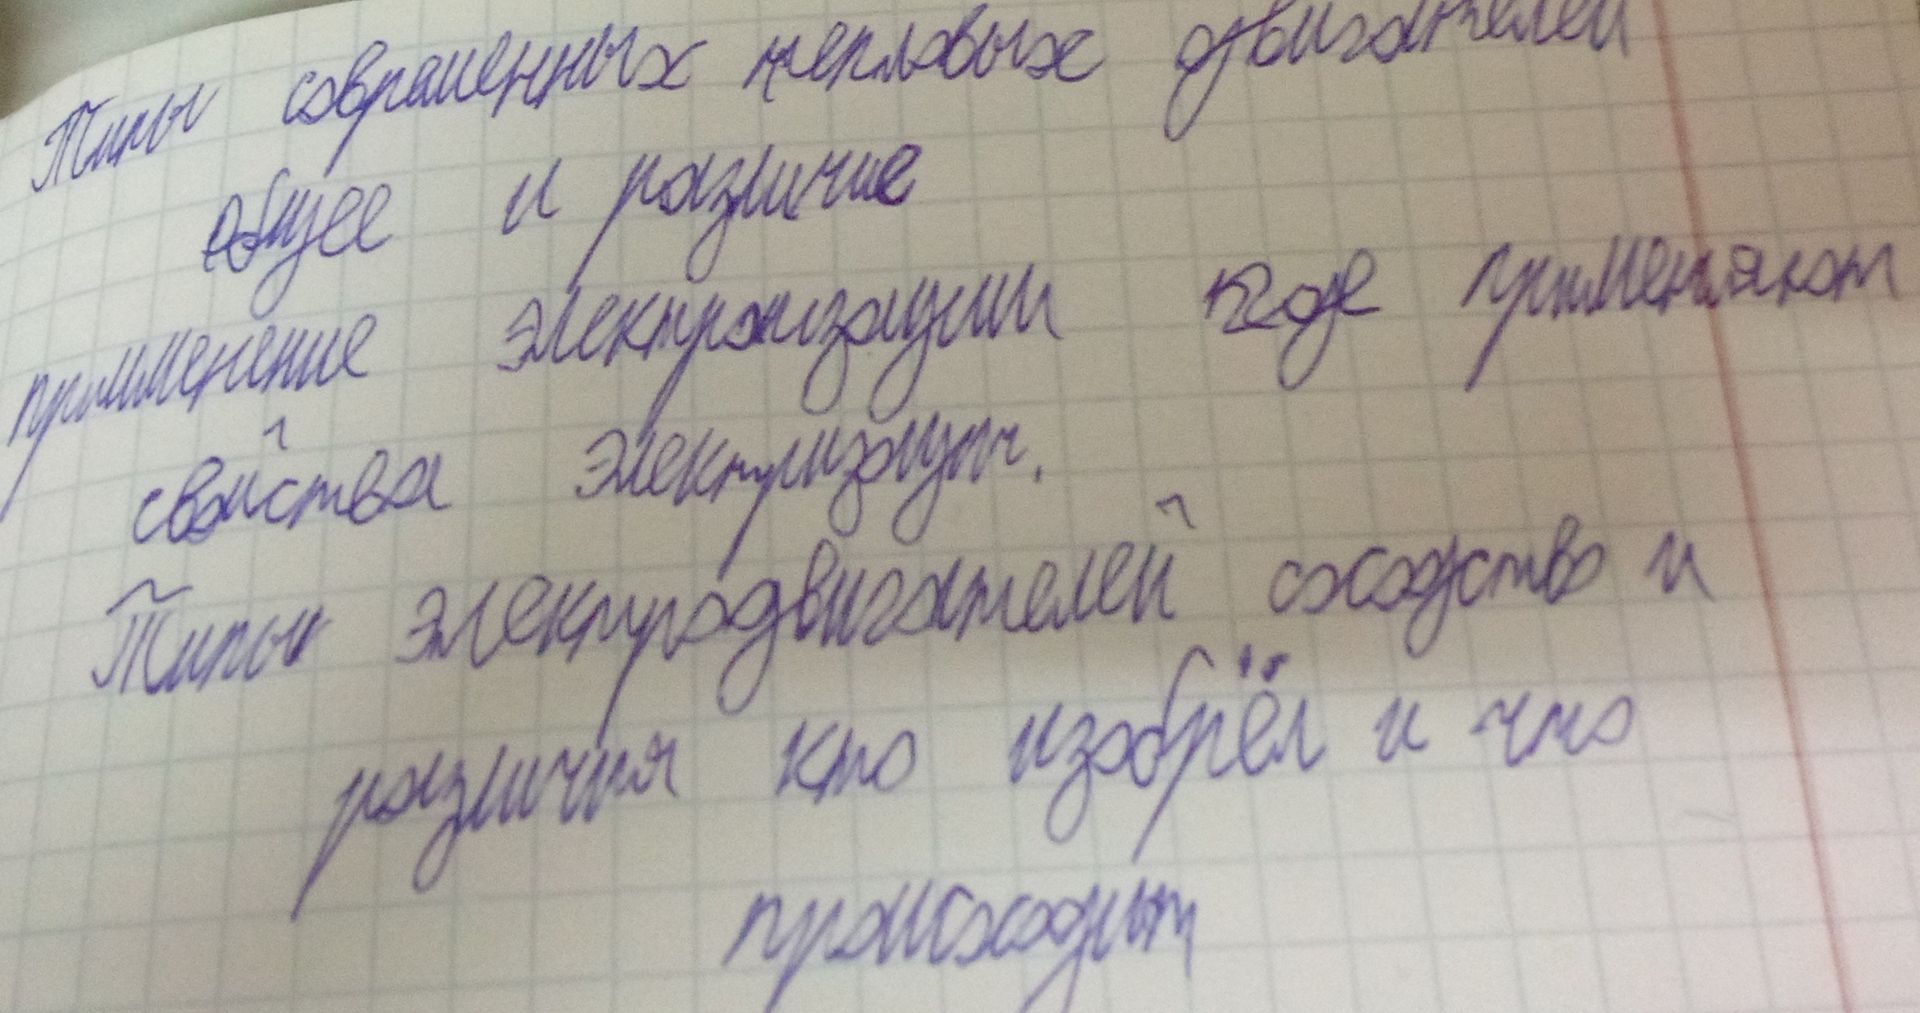 Типы современных тепловых двигателей
общее и различие
применение электризации где применяют
свойства электризации.
Типы электродвигателей сходство и
различия кто изобрёл и что
происходит